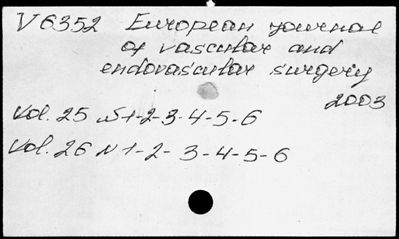 V6352 European journal
of vascular and
endovascular surgery
2003
Vol. 25 N 1-2-3-4-5-6
Vol. 26 N 1-2-3-4-5-6